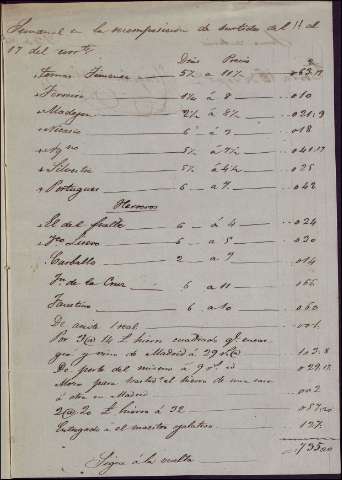 Semanal en la recomposicion de surtidos del 11 al
17 del corrte
Dias Precio
Tomas Jimenez 5½ a 11½ 063.17
Ferreiro 1¼ á 8 010
Madejon 2½ á 8½ 021.9
6 á 3 018
5½ á 7½ 041.17
Silvestre 5½ á 4½ 025
Portugues 6 a 7 042
Herreros
El del fuelle 6 á 4 024
6 a 5 030
Carballo 2 a 7 014
Jn. de la Cruz 6 a 11 066
Faustino 6 a 10 060
De aceite 1 real 001
Por 3@ 14 £ hierro cuadrado qe.
y vino de Madrid á 29 103.8
De porte del mismo á 9 029.17
para el hierro de una casa
á otra en Madrid 002
2@ 20 £ hierro á 32 057.20
Entregado á el maestro 127
735.20
Sigue á la vuelta